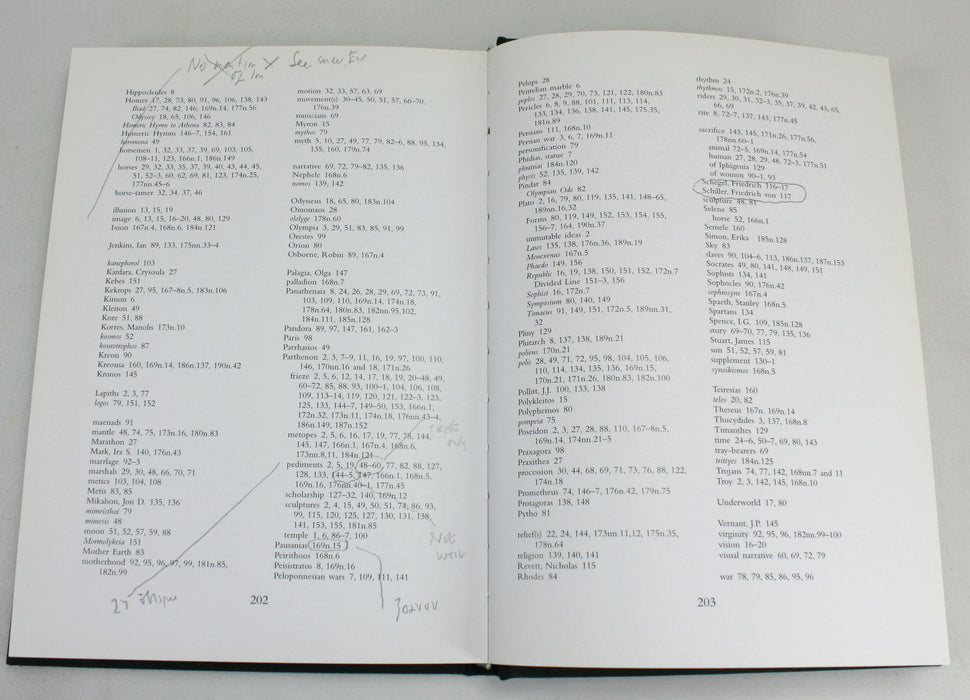 See
Hippocleides 8
Homer 17, 28, 73, 80, 91, 96, 106, 138, 143
Iliad 27, 74, 82, 146, 169n.14, 177n.56
Odyssey 18, 65, 106, 146
Homeric Hymn to Athena 82, 83, 84
Homeric Hymns 146–7, 154, 161
horomena 49
horsemen 1, 32, 33, 35, 37, 39, 69, 103, 105,
108–11, 123, 166n.1, 186n.149
horses 29, 32, 33, 35, 37, 39, 40, 43, 44, 45,
51, 52–3, 60, 62, 69, 81, 123, 174n.25,
177nn.45–6
horse-tamer 32, 34, 37, 46
illusion 13, 15, 19
image 6, 13, 15, 16–20, 48, 80, 129
Ixion 167n.4, 168n.6, 184n.121
Jenkins, Ian 89, 133, 175nn.33–4
kanephoroi 103
Kardara, Crysoula 27
Kebes 151
Kekrops 27, 95, 167–8n.5, 183n.106
Kimon 6
Kleiton 49
Kore 51, 88
Korres, Manolis 173n.10
kosmos 52
kourotrophos 87
Kreon 90
Kreousa 160, 169n.14, 186n.137, 190n.42
Kronos 145
Lapiths 2, 3, 77
logos 79, 151, 152
maenads 91
mantle 48, 74, 75, 173n.16, 180n.83
Marathon 27
Mark, Ira S. 140, 176n.43
marriage 92–3
marshals 29, 30, 48, 66, 70, 71
metics 103, 104, 108
Metis 83, 85
Mikalson, Jon D. 135, 136
mimeisthai 79
mimesis 48
moon 51, 52, 57, 59, 88
Mormolykeia 151
Mother Earth 83
motherhood 92, 95, 96, 97, 99, 181n.85,
182n.99
motion 32, 33, 57, 63, 69
movement(s) 30–45, 50, 51, 57, 66–70,
176n.39
musicians 69
Myron 15
mythos 79
myth 5, 10, 27, 49, 77, 79, 82–6, 88, 95, 134,
135, 160, 179n.74
narrative 69, 72, 79–82, 135, 136
Nephele 168n.6
nomos 139, 142
Odysseus 18, 65, 80, 183n.104
Oinomaos 28
ololyge 178n.60
Olympia 3, 29, 51, 83, 85, 91, 99
Orestes 99
Orion 80
Osborne, Robin 89, 167n.4
Palagia, Olga 147
palladion 168n.7
Panathenaia 8, 24, 26, 28, 29, 69, 72, 73, 91,
103, 109, 110, 169n.14, 174n.18,
178n.64, 180n.83, 182nn.95,102,
184n.111, 185n.128
Pandora 89, 97, 147, 161, 162–3
Paris 98
Parrhasios 49
Parthenon 2, 3, 7–9, 11, 16, 19, 97, 100, 110,
146, 170nn.16 and 18, 171n.26
frieze 2, 5, 6, 12, 14, 17, 18, 19, 20–48, 49,
60–72, 85, 88, 93, 100–1, 104, 106, 108,
109, 113–14, 119, 120, 121, 122–3, 123,
125, 133, 144–7, 149–50, 153, 166n.1,
172n.32, 173n.11, 174n.18, 176nn.43–4,
186n.149, 187n.152
metopes 2, 5, 6, 16, 17, 19, 77, 78, 144,
145, 147, 166n.1, 167n.4, 168n.6,
173nn.8,11, 184n.121
pediments 2, 5, 19, 48–60, 77, 82, 88, 127,
128, 133, 144–5, 147, 166n.1, 168n.5,
169n.16, 176nn.40–1, 177n.45
scholarship 127–32, 140, 169n.12
sculptures 2, 4, 15, 49, 50, 51, 74, 86, 93,
99, 115, 120, 125, 127, 130, 131, 138,
141, 153, 155, 181n.85
temple 1, 6, 86–7, 100
Pausanias 169n.15
Peirithoos 168n.6
Peisistratos 8, 169n.16
Peloponnesian wars 7, 109, 111, 141
27 oblique
202
Pelops 28
Pentelian marble 6
peplos 27, 28, 29, 70, 73, 121, 122, 180n.83
Pericles 6, 8, 9, 88, 101, 111, 113, 114,
133, 134, 136, 138, 141, 145, 175.35,
181n.89
Persians 111, 168n.10
Persian war 3, 6, 7, 169n.11
personification 79
Phidias, statue 7
phratriai 184n.120
physis 52, 135, 139, 142
Pindar 84
Olympian Ode 82
Plato 2, 16, 79, 80, 119, 135, 141, 148–65,
189nn.16,32
Forms 80, 119, 149, 152, 153, 154, 155,
156–7, 164, 190n.37
immutable ideas 2
Laws 135, 138, 176n.36, 189n.19
Menexenus 167n.5
Phaedo 149, 156
Republic 16, 19, 138, 150, 151, 152, 172n.7
Divided Line 151–3, 156
Sophist 16, 172n.7
Symposium 80, 140, 149
Timaeus 91, 149, 151, 172n.5, 189nn.31,
32
Pliny 129
Plutarch 8, 137, 138, 189n.21
poliens 170n.21
polis 28, 49, 71, 72, 95, 98, 104, 105, 106,
110, 114, 134, 135, 136, 169n.15,
170n.21, 171n.26, 180n.83, 182n.100
Pollitt, J.J. 100, 133, 138
Polykleitos 15
Polyphemos 80
pompeia 75
Poseidon 2, 3, 27, 28, 88, 110, 167–8n.5,
169n.14, 174nn.21–5
Praxagora 98
Praxithea 27
procession 30, 44, 68, 69, 71, 73, 76, 88, 122,
174n.18
Prometheus 74, 146–7, 176n.42, 179n.75
Protagoras 138, 148
Pytho 81
relief(s) 22, 24, 144, 173nn.11,12, 175n.35,
178n.64
religion 139, 140, 141
Revett, Nicholas 115
Rhodes 84
rhythm 24
rhythmos 15, 172n.2, 176n.39
riders 29, 30, 31, 32–3, 35, 37, 39, 42, 43, 65,
66, 69
rite 8, 72–7, 137, 143, 177n.45
sacrifice 143, 145, 171n.26, 177n.56,
178nn.60–1
animal 72–5, 169n.14, 177n.54
human 27, 28, 29, 48, 72–3, 177n.51
of Iphigenia 129
of women 90–1, 93
Schegel, Friedrich 116–17
Schiller, Friedrich von 117
sculpture 48, 81
Selene 85
horse 52, 166n.1
Semele 160
Simon, Erika 185n.128
Sky 83
slaves 90, 104–6, 113, 186n.137, 187n.153
Socrates 49, 80, 141, 148, 149, 151
Sophists 134, 141
Sophocles 90, 176n.42
sophrosyne 167n.4
Spaeth, Stanley 168n.5
Spartans 134
Spence, I.G. 109, 185n.128
story 69–70, 77, 79, 135, 136
Stuart, James 115
sun 51, 52, 57, 59, 81
supplement 130–1
synoikismos 168n.5
Teiresias 160
telos 20, 82
Theseus 167n. 169n.14
Thucydides 3, 137, 168n.8
Timanthes 129
time 24–6, 50–7, 69, 80, 143
tray-bearers 69
trittyes 184n.125
Trojans 74, 77, 142, 168nn.7 and 11
Troy 2, 3, 142, 145, 168n.10
Underworld 17, 80
Vernant, J.P. 145
virginity 92, 95, 96, 182nn.99–100
vision 16–20
visual narrative 60, 69, 72, 79
war 78, 79, 85, 86, 95, 96
203